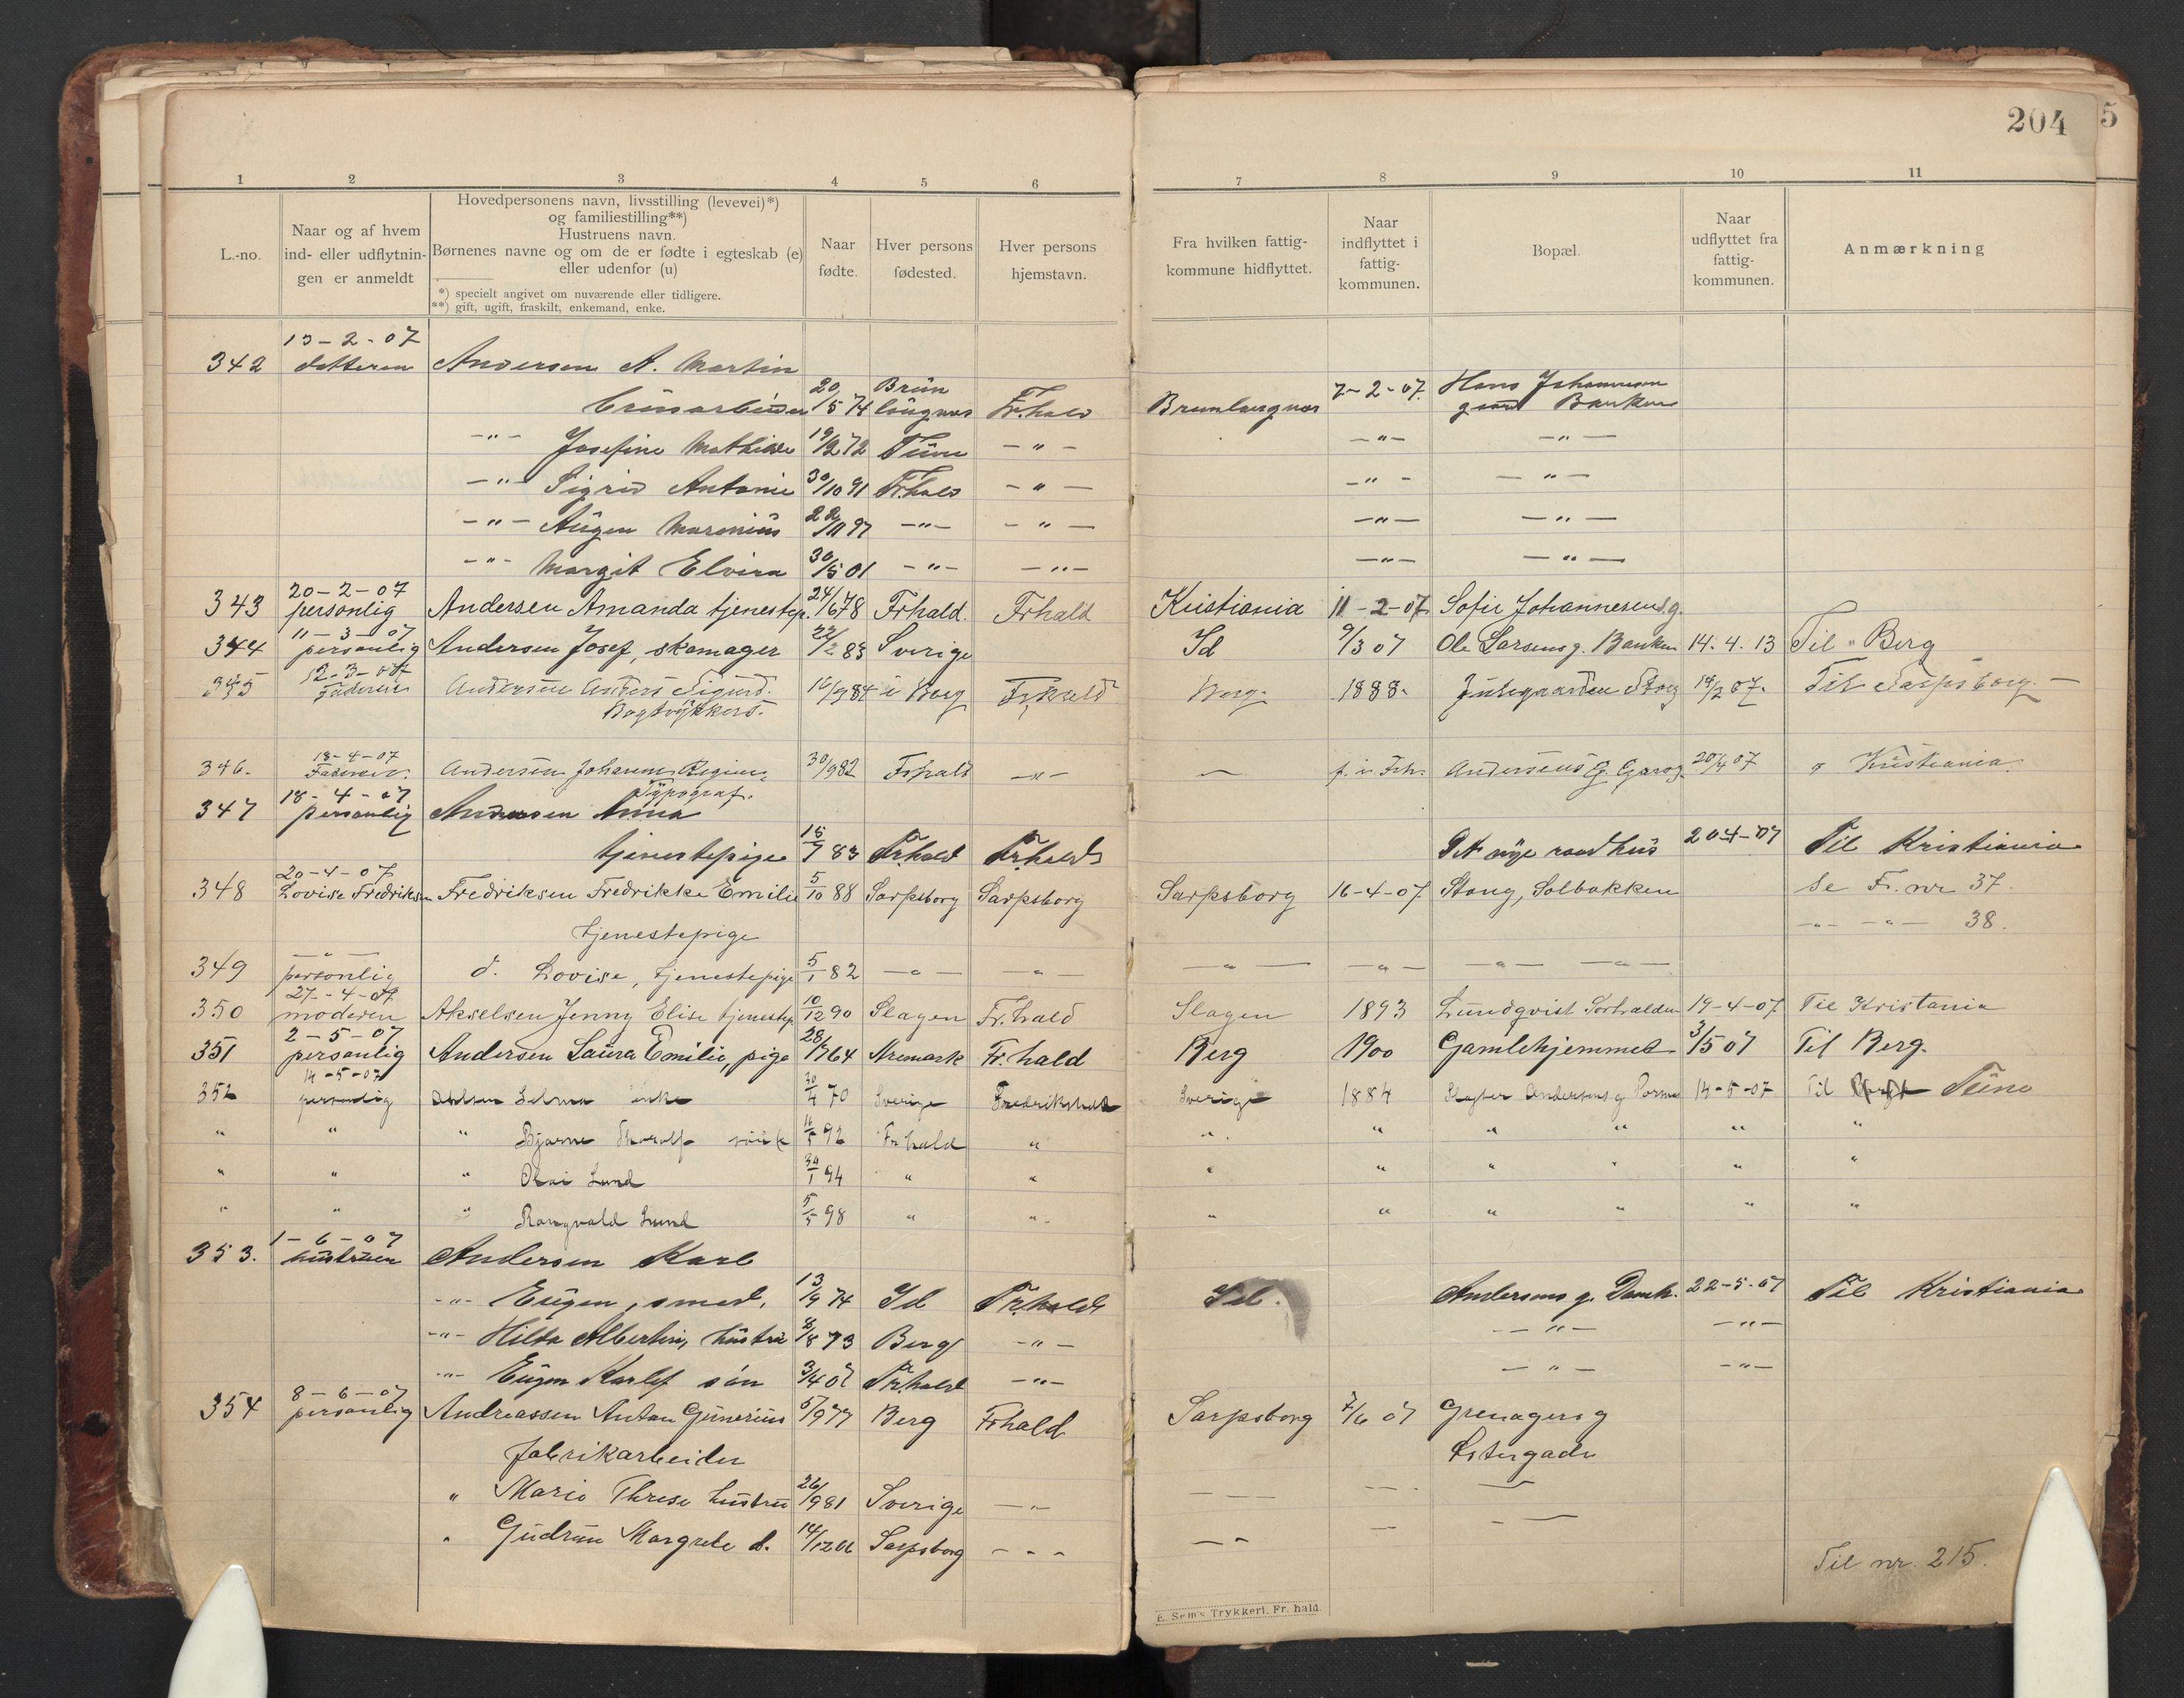 204
5
1 2 3 4 5 6 7 8 9 10 11
L.-no.
Naar og af hvem
ind- eller udflytnin-
gen er anmeldt
Hovedpersonens navn, livsstilling (levevei)*)
og familiestilling**)
Hustruens navn.
Børnenes navne og om de er fødte i egteskab (e)
eller udenfor (u)
*) specielt angivet om nuværende eller tidligere.
**) gift, ugift, fraskilt, enkemand, enke.
Naar
fødte.
Hver persons
fødested.
Hver persons
hjemstavn.
Fra hvilken fattig-
kommune hidflyttet.
Naar
indflyttet i
fattig-
kommunen.
Bopæl.
Naar
udflyttet fra
fattig-
kommunen.
Anmærkning
13-2-07
342 datteren Andersen A. Martin
20/5 74 Brün
langnæs Fr.hald Brunlaugnæs 7-2-07. Hans Johannesen
gaard Banken
-"- Josefine Mathilde 19/2 72 Tüne -"- -"- -"-
-"- Sigrid Antonie 30/10 91 Fr.hald -"- -"- -"-
-"- Augen Marenius 22/11 97 -"- -"- -"- -"-
-"- Margit Elvira 30/5 01 -"- -"- -"- -"-
20-2-07
343 personlig Andersen Amanda tjenestep. 24/6 78 Frhald. Frhald Kristiania 11-2-07 Sofie Johannesens g.
11-3-07
344 personlig Andersen Josef, skomager 22/2 83 Sverige Id 9/3 07 Ole Larsens g. Banken 14.4.13 Til Berg
12-3-07
345 Faderen Andersen Anders Sigurd. 16/9 84 i Berg Frhald Berg. 1888. 14/3 07. Til Sarpsborg. -
Bogtrykkers.
18-4-07
346. Faderen. Andersen Johannes 30/9 82 Frhald -"- - f. i Frh. Andersens G. 20/4 07 " Kristiania.
Typograf.
18-4-07
347 personlig Andersen Anna
tjenestepige 15/7 83 Fr.hald Fr.hald Det nye raadhus 20-4-07 Til Kristiania
20-4-07
348 Lovise Fredriksen Fredriksen Fredrikke Emilie 5/10 88 Sarpsborg Sarpsborg Sarpsborg 16-4-07 Stang, Solbakken Se Fr. nr 37.
tjenestepige -"- -"- 38.
-"-
349 personlig d. Lovise, tjenestepige 5/1 82 -"- -"- -"- -"- -"- -"-
27-4-07
350 moderen Akselsen Jenny Elise tjenestep. 10/12 90 Slagen Fr.hald Slagen 1893 Lundqvist Sorhalden 19-4-07 Til Kristania
2-5-07
351 personlig Andersen Laura Emilie, pige 28/7 64 Aremark Fr.hald Berg 1900 Gamlehjemmet 3/5 07 Til Berg.
14-5-07
352 personlig Selma enke 30/4 70 Sverige Fredrikshald Sverige 1884 Slagter Andersens g 14-5-07 Til Tüne
" " " Bjarne Thoralf 16/5 92 Frhald " " " " " " "
" " " Olai Lund 30/1 94 " " " " " " " "
" " " Rangvald Lund 5/5 98 " " " " " " " "
1-6-07
353. hustruen Andersen Karl
-"- Eugen, smed, 13/9 74 Id Fr.hald Id. Andersens g. Damh. 22-5-07 Til Kristiania
-"- Hilda Albertine, hustru 2/8 73 Berg -"- -"- -"-
-"- Eugen Karlef søn 3/4 07 Fr.hald -"- -"- -"-
8-6-07
354 personlig Andreassen Anton Günerius 5/9 77 Berg Frhald Sarpsborg 7/6 07 Grenagers g
Fabrikarbeider Østergade
" Marie Threse hustru 26/9 81 Sverige -"-
" Gudrun Margrete d. 14/12 06 Sarpsborg - - -
Til nr. 215.
E. Sem's Trykkeri, Fr.hald.